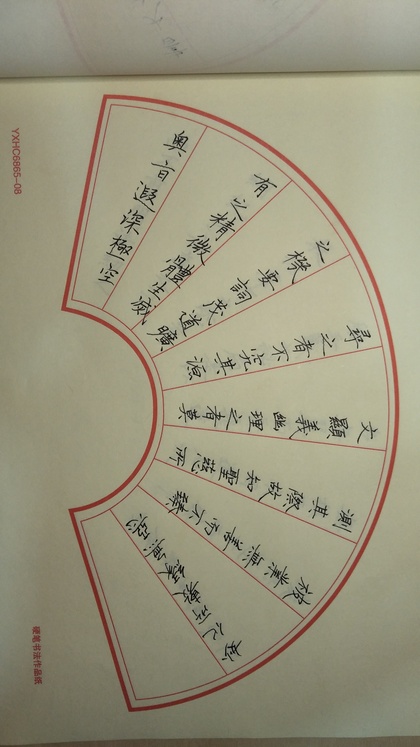 奥旨遐深極空
有之精微體生滅
之機要詞茂道曠
尋之者不究其源
文顯義幽理之者莫
測其際故知聖慈所
被業無善而不臻
妙化所敷緣無惡
YXHC6865-08
硬笔书法作品纸